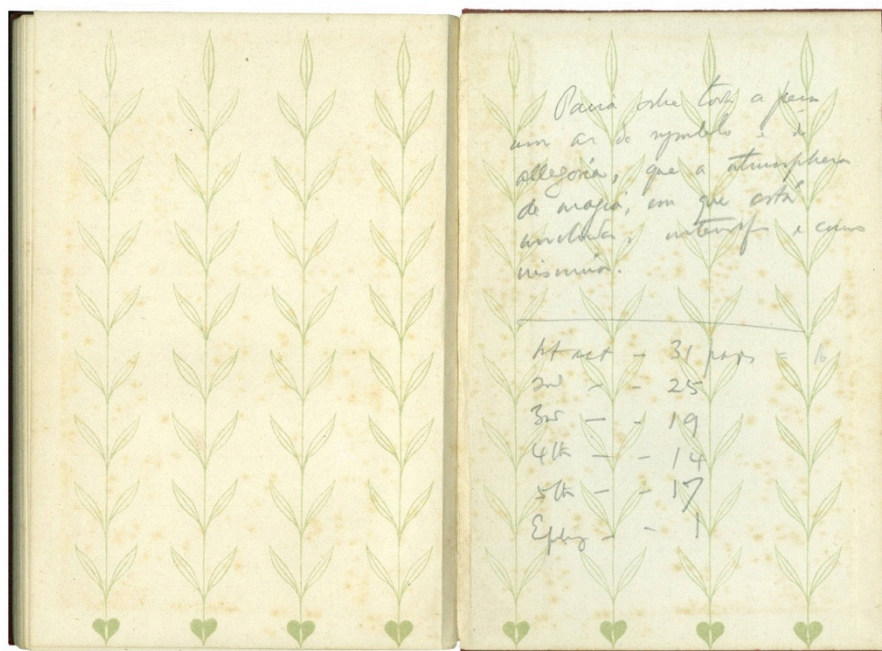 Paira sobre toda a peça
um ar de symbolo e de
allegoria, que a atmosphera
de magia, em que está
envolvida, intensifica e como
1st act - 31 pages = 16
2nd - - 25
3rd - - 19
4th - - 14
5th - - 17
Epilog - - 1